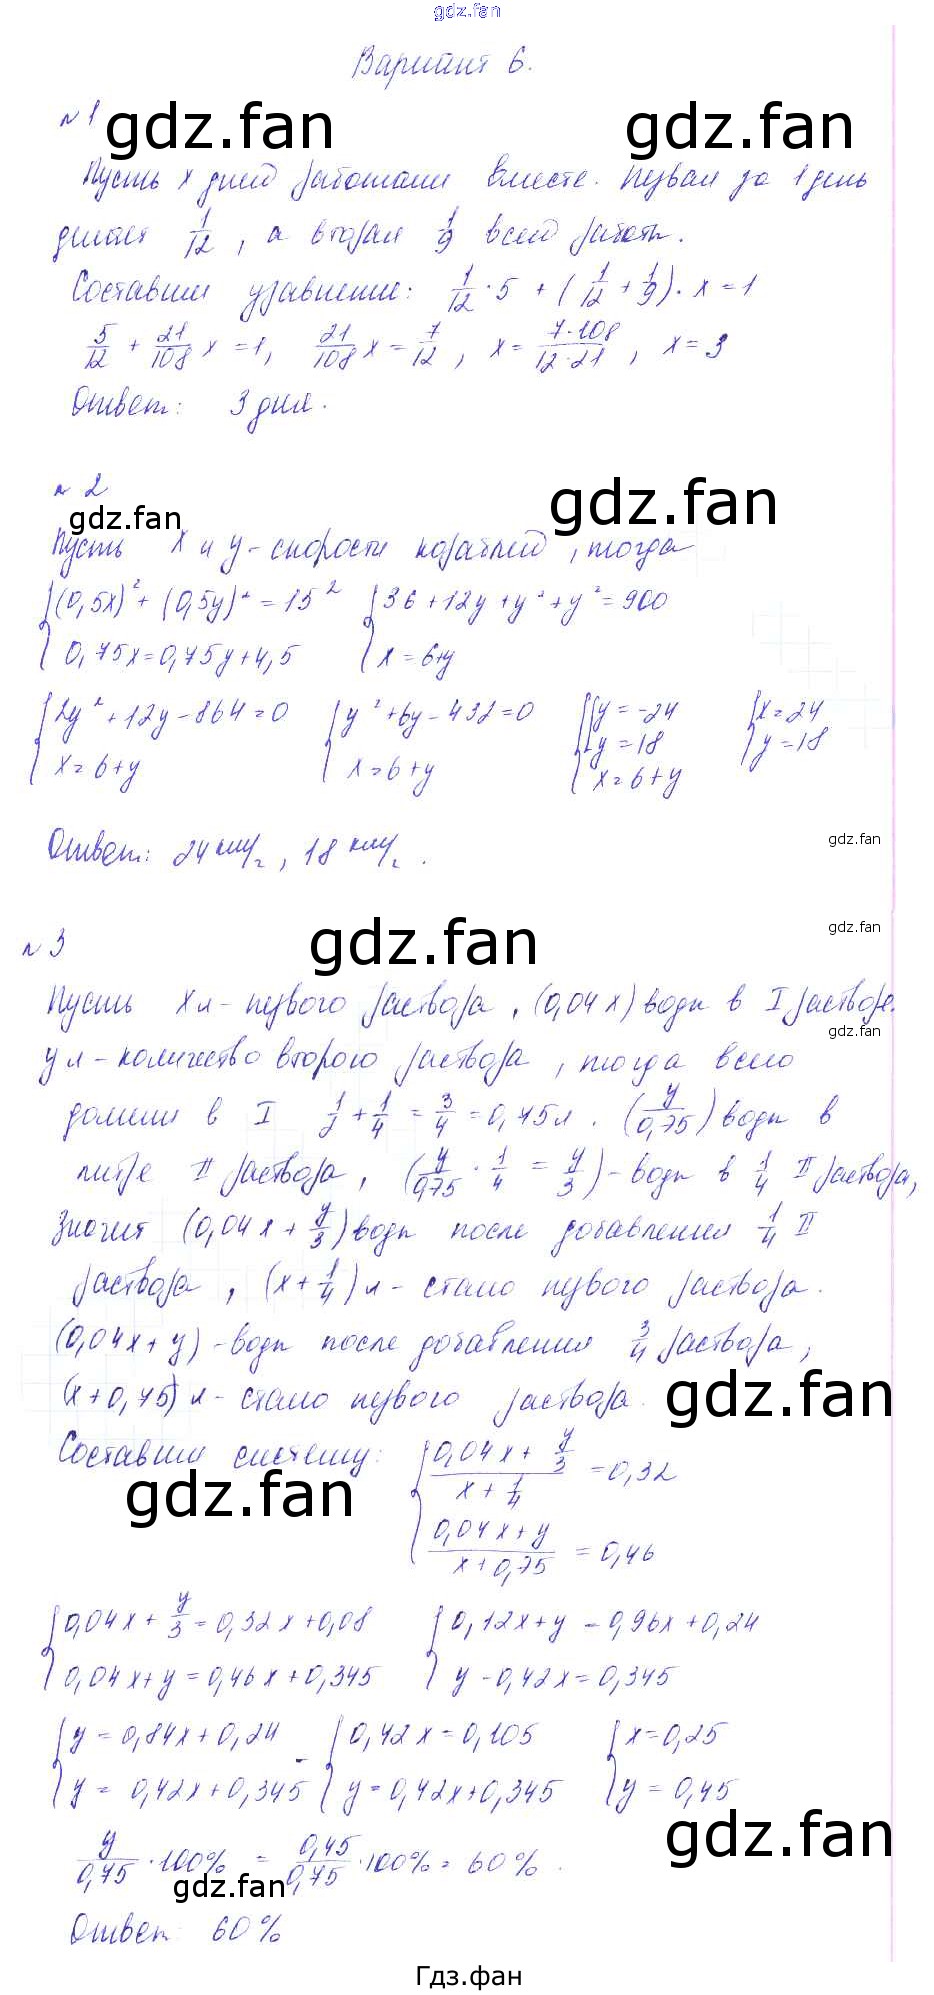 gdz.fan
Вариант 6.
№1
gdz.fan gdz.fan
Пусть x дней работали вместе. Первая за 1 день
делает 1/12, а вторая 1/9 всей работы.
Составим уравнение: 1/12 · 5 + (1/12 + 1/9) · x = 1
5/12 + 21/108 x = 1, 21/108 x = 7/12, x = 7·108/12·21, x = 3
Ответ: 3 дня.
№2
gdz.fan
gdz.fan
Пусть x и y - скорости кораблей, тогда
{(0,5x)² + (0,5y)² = 15² {36 + 12y + y² + y² = 900
0,75x = 0,75y + 4,5 x = 6+y
{2y² + 12y - 864 = 0 {y² + 6y - 432 = 0 {[y = -24 {x = 24
y = 18 y = 18
x = 6 + y x = 6 + y x = 6 + y
Ответ: 24 км/г, 18 км/г.
gdz.fan
№3
gdz.fan
gdz.fan
Пусть x л - первого раствора, (0,04x) воды в I растворе.
gdz.fan
y л - количество второго раствора, тогда всего
долили в I 1/2 + 1/4 = 3/4 = 0,75 л. (y/0,75) воды в
литре II раствора, (y/0,75 · 1/4 = y/3) - воды в 1/4 II раствора,
Значит (0,04x + y/3) воды после добавления 1/4 II
раствора, (x + 1/4) л - стало первого раствора.
(0,04x + y) - воды после добавления 3/4 раствора,
(x + 0,75) л - стало первого раствора.
gdz.fan
Составим систему: {(0,04x + y/3)/(x + 1/4) = 0,32
gdz.fan
(0,04x + y)/(x + 0,75) = 0,46
{0,04x + y/3 = 0,32x + 0,08 {0,12x + y = 0,96x + 0,24
0,04x + y = 0,46x + 0,345 y - 0,42x = 0,345
{y = 0,84x + 0,24 - {0,42x = 0,105 {x = 0,25
y = 0,42x + 0,345 y = 0,42x + 0,345 y = 0,45
gdz.fan
y/0,75 · 100% = 0,45/0,75 · 100% = 60%.
gdz.fan
Ответ: 60%
Гдз.фан